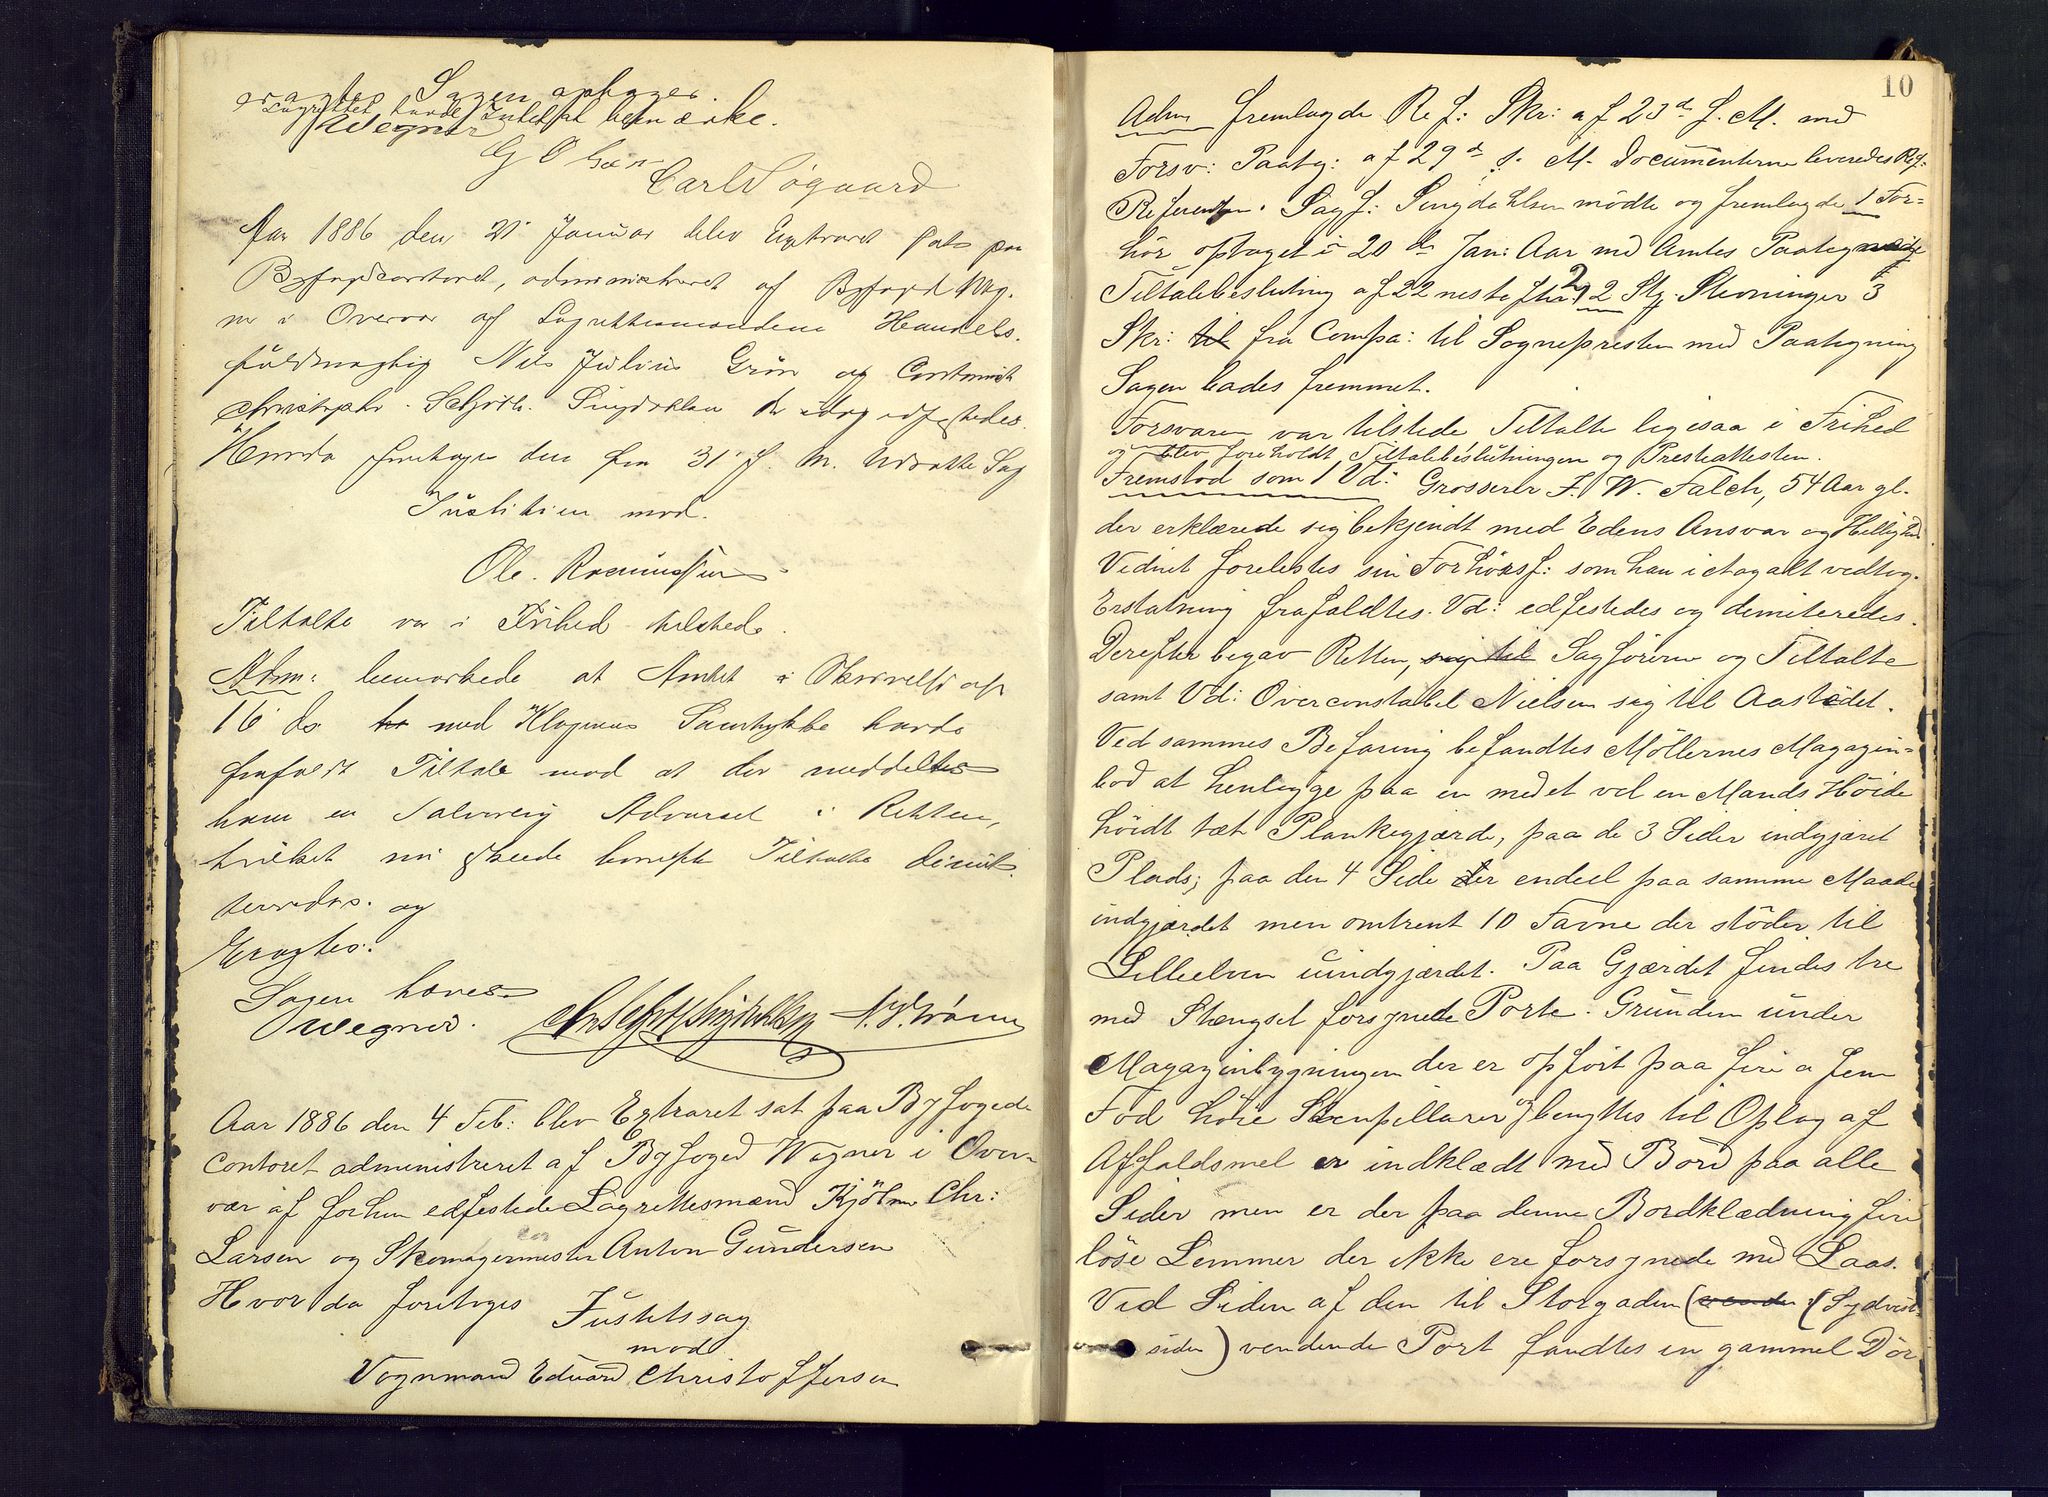 eragtes Sagen optages.
Lagrettet havde Intet at bemærke.
Wegner
G Olsen
Carl Søgaard
Aar 1886 den 21 Januar blev Extraret sat paa
Byfogedcontoret, administreret af Byfoged Weg-
ner i Overvær af Lagrettesmændene Handels-
fuldmægtig Nils Julius Grøn og Contorist
Christopher Schjøth Singdahlsen der idag edfæstedes.
Hvorda foretoges den fra 31 f. M. udsatte Sag
Justitien mod.
Ole Rasmussen
Tiltalte var i Frihed tilstede.
Adm: bemærkede at Amtet i Skrivelse af
16 ds med Klagerens Samtykke havde
frafaldt Tiltale mod at der meddeltes
ham en alvorlig Advarsel i Retten,
hvilket nu skeede hvorefter Tiltalte dimit-
terredes. og
Eragtes:
Sagen hæves.
Wegner. Chr Schjøth Singdahlsen N. J. Grøn
Aar 1886 den 4 Feb: blev Extraret sat paa Byfoged-
contoret administreret af Byfoged Wegner i Over-
vær af forhen edfestede Lagrettesmænd Kjöbm Chr:
Larsen og Skomagermester Anton Gundersen
Hvor da foretoges Justitssag
mod
Vognmand Eduard Christoffersen
10
Adm fremlagde Ref: Skr: af 23de f. M. med
Forsv: Paateg: af 29de s. M. Documenterne leveredes Ref:
Referenten. Sagf: Singdahlsen mödte og fremlagde 1 For=
hör optaget i 20de Jan: Aar med Amtets Paategning
Tiltalebeslutning af 22 nestefter 2) 2 Stg. Stevninger 3
Skr: til fra Compa: til Sognepresten med Paategning
Sagen bades fremmet.
Forsvaren var tilstede Tiltalte ligesaa i Frihed
og blev foreholdt Tiltalebeslutningen og Presteattesten.
Fremstod som 1 Vd: Grosserer F. W. Falch, 54 Aar gl.
der erklærede sig bekjendt med Edens Ansvar og Hellighed
Vidnet forelestes sin Forhörsf: som han i et og alt vedtog.
Erstatning frafaldtes. Vd: edfestedes og demiteredes.
Derefter begav Retten, sig til Sagförerne og Tiltalte
samt Vd: Overconstabel Nielsen sig til Aastedet.
Ved sammes Befaring befandtes Möllernes Magazin=
bod at henligge paa en med et vel en Mands Höide
höidt tæt Plankegjærde, paa de 3 Sider indgjæret
Plads; paa den 4 Side er endeel paa samme Maade
indgjærdet men omtrent 10 Favne der stöder til
Lilleelven uindgjærdet. Paa Gjærdet findes tre
med Stængsel forsynede Porte. Grunden under
Magazinbygningen der er opfört paa fire a fem
Fod höie Stenpillarer og benyttes til Oplag af
Affaldsmel er indklædt med Bord paa alle
Sider men er der paa denne Bordklædning fire
löse Lemmer der ikke ere forsynede med Laas.
Ved Siden af den til Storgaden (vende (Sydvest-
siden) vendende Port fandtes en gammel Dör